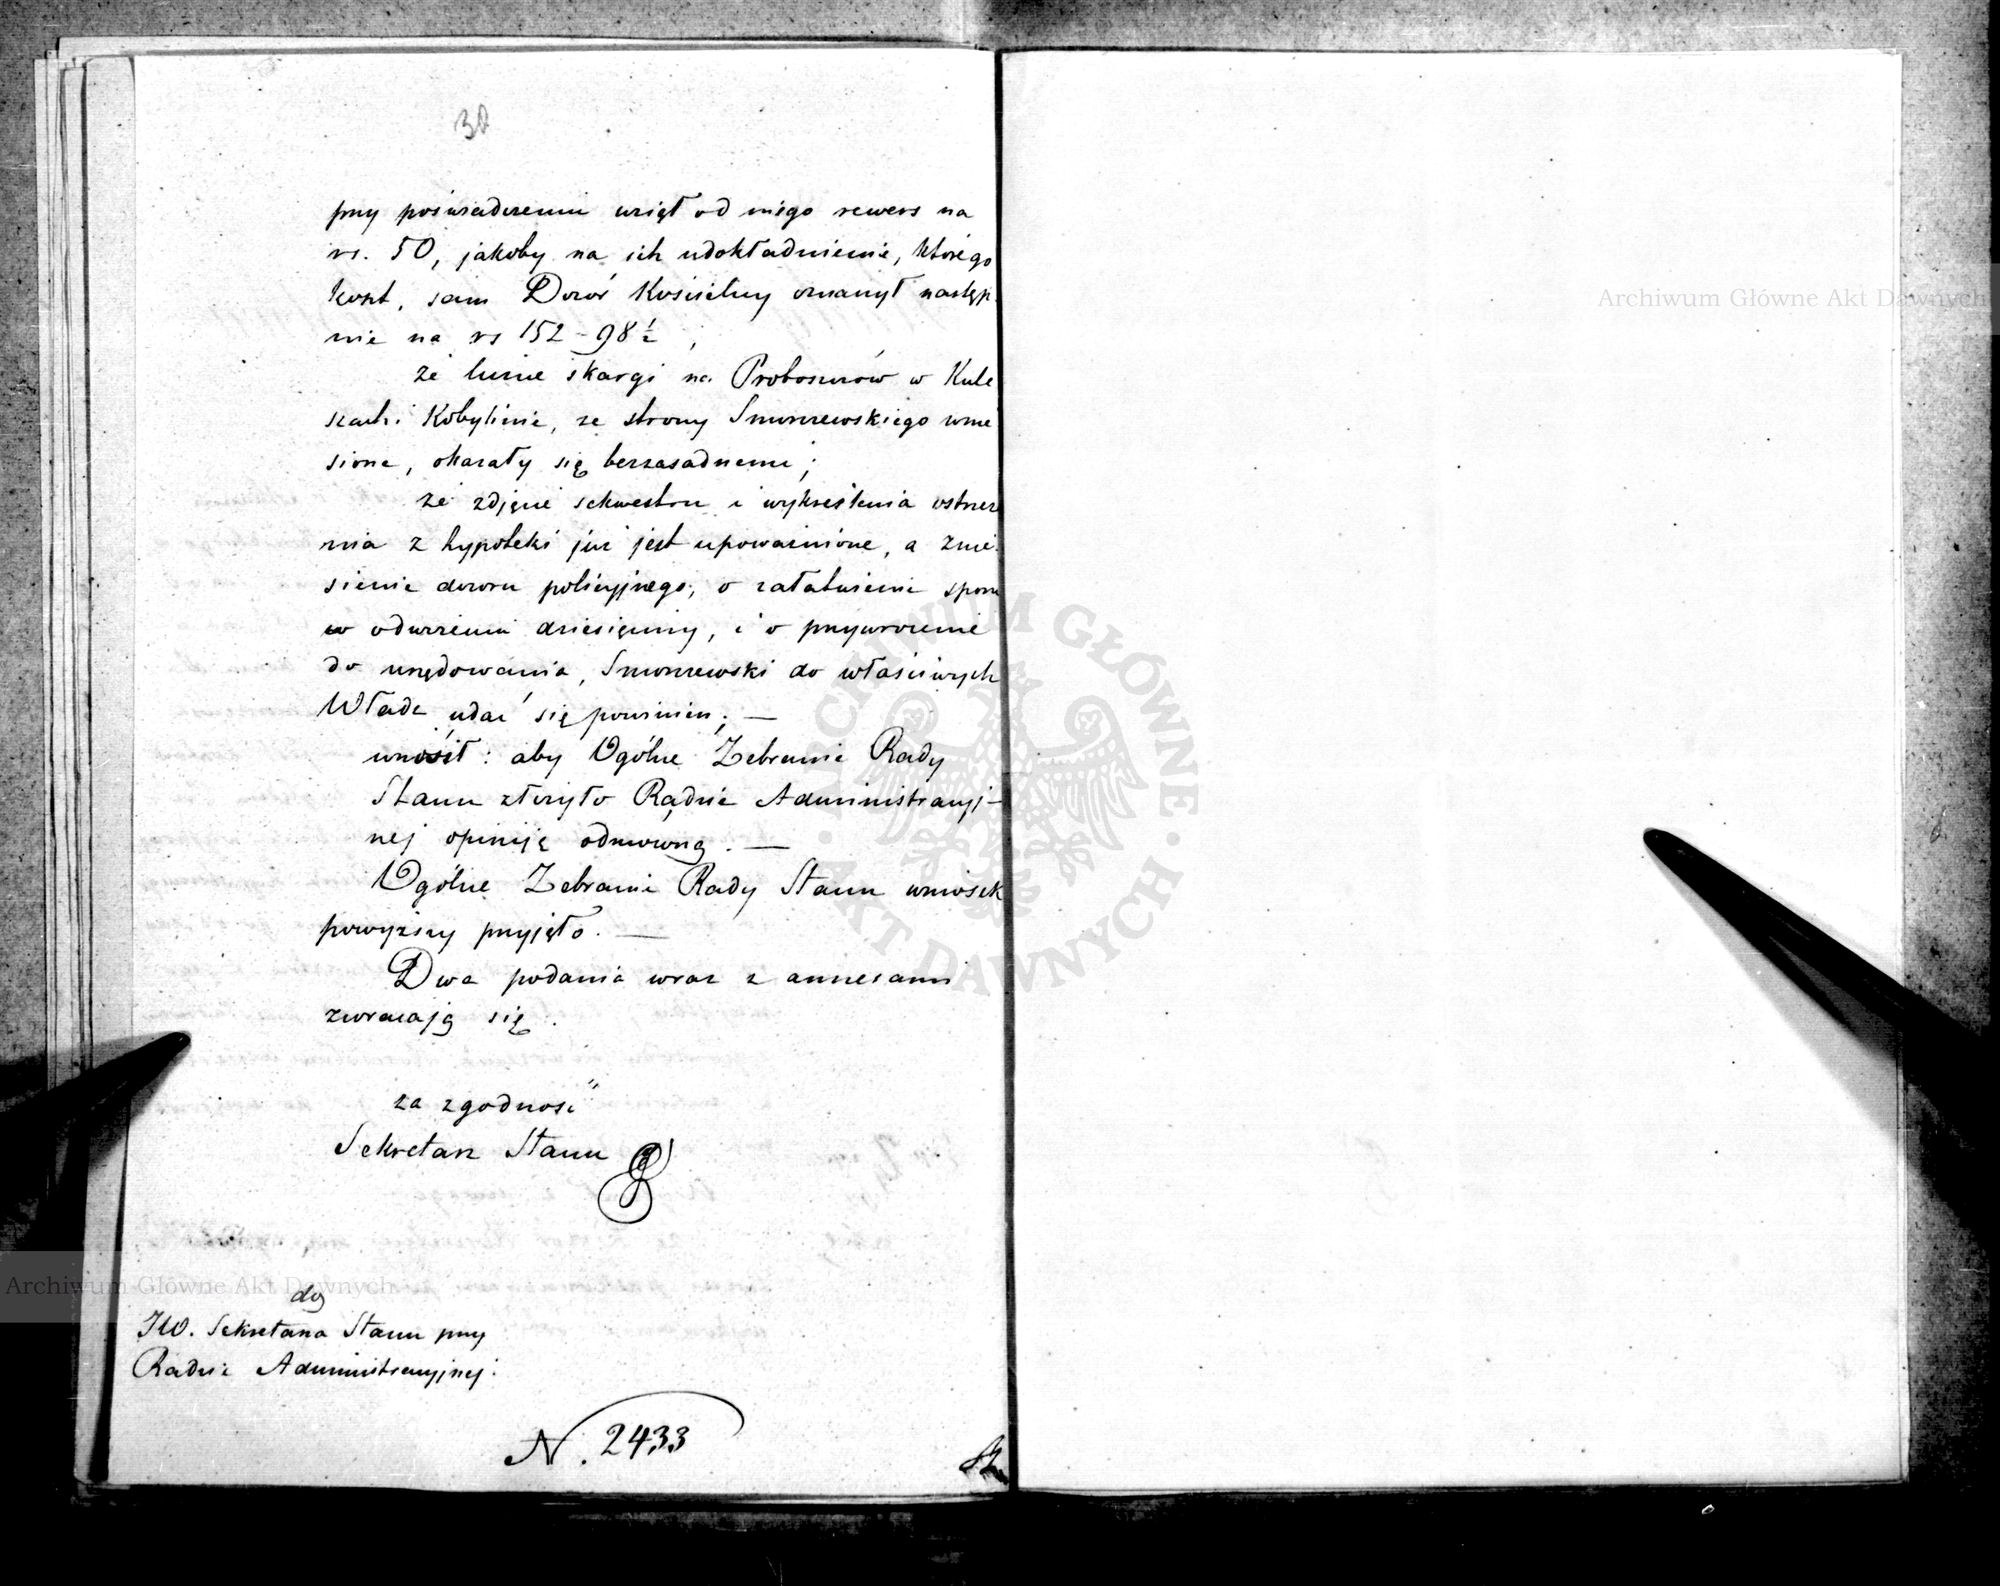 38
przy poświadczeniu wziął od niego rewers na
rs. 50, jakoby na ich udokładnienie, którego
koszt, sam Dozór Kościelny oznaczył następ-
nie na rs 152 - 98 1/2,
że liczne skargi na Proboszczów w Kule
szach i Kobylinie, ze strony Smorzewskiego wnie
sione, okazały się bezzasadnemi;
że zdjęcie sekwestru i wykreślenia ostrzeż
nia z hypoteki już jest upoważnione, a znie-
sienie dozoru policyjnego, o załatwienie sporu
w odurzeniu dziesięciny, i o przywrócenie
do urzędowania, Smorzewski do właściwych
Władz udać się powinien; —
wnosił: aby Ogólne Zebranie Rady
Stanu złożyło Radzie Administracyj-
nej opiniję odmowną. —
Ogólne Zebranie Rady Stanu wniosek
powyższy przyjęło. —
Dwa podania wraz z annexami
zwracają się.
za zgodność
Sekretarz Stanu
do
JW. Sekretarza Stanu przy
Radzie Administracyjnej.
N. 2433
Archiwum Główne Akt Dawnych
Archiwum Główne Akt Dawnych
ARCHIWUM GŁÓWNE · AKT DAWNYCH ·